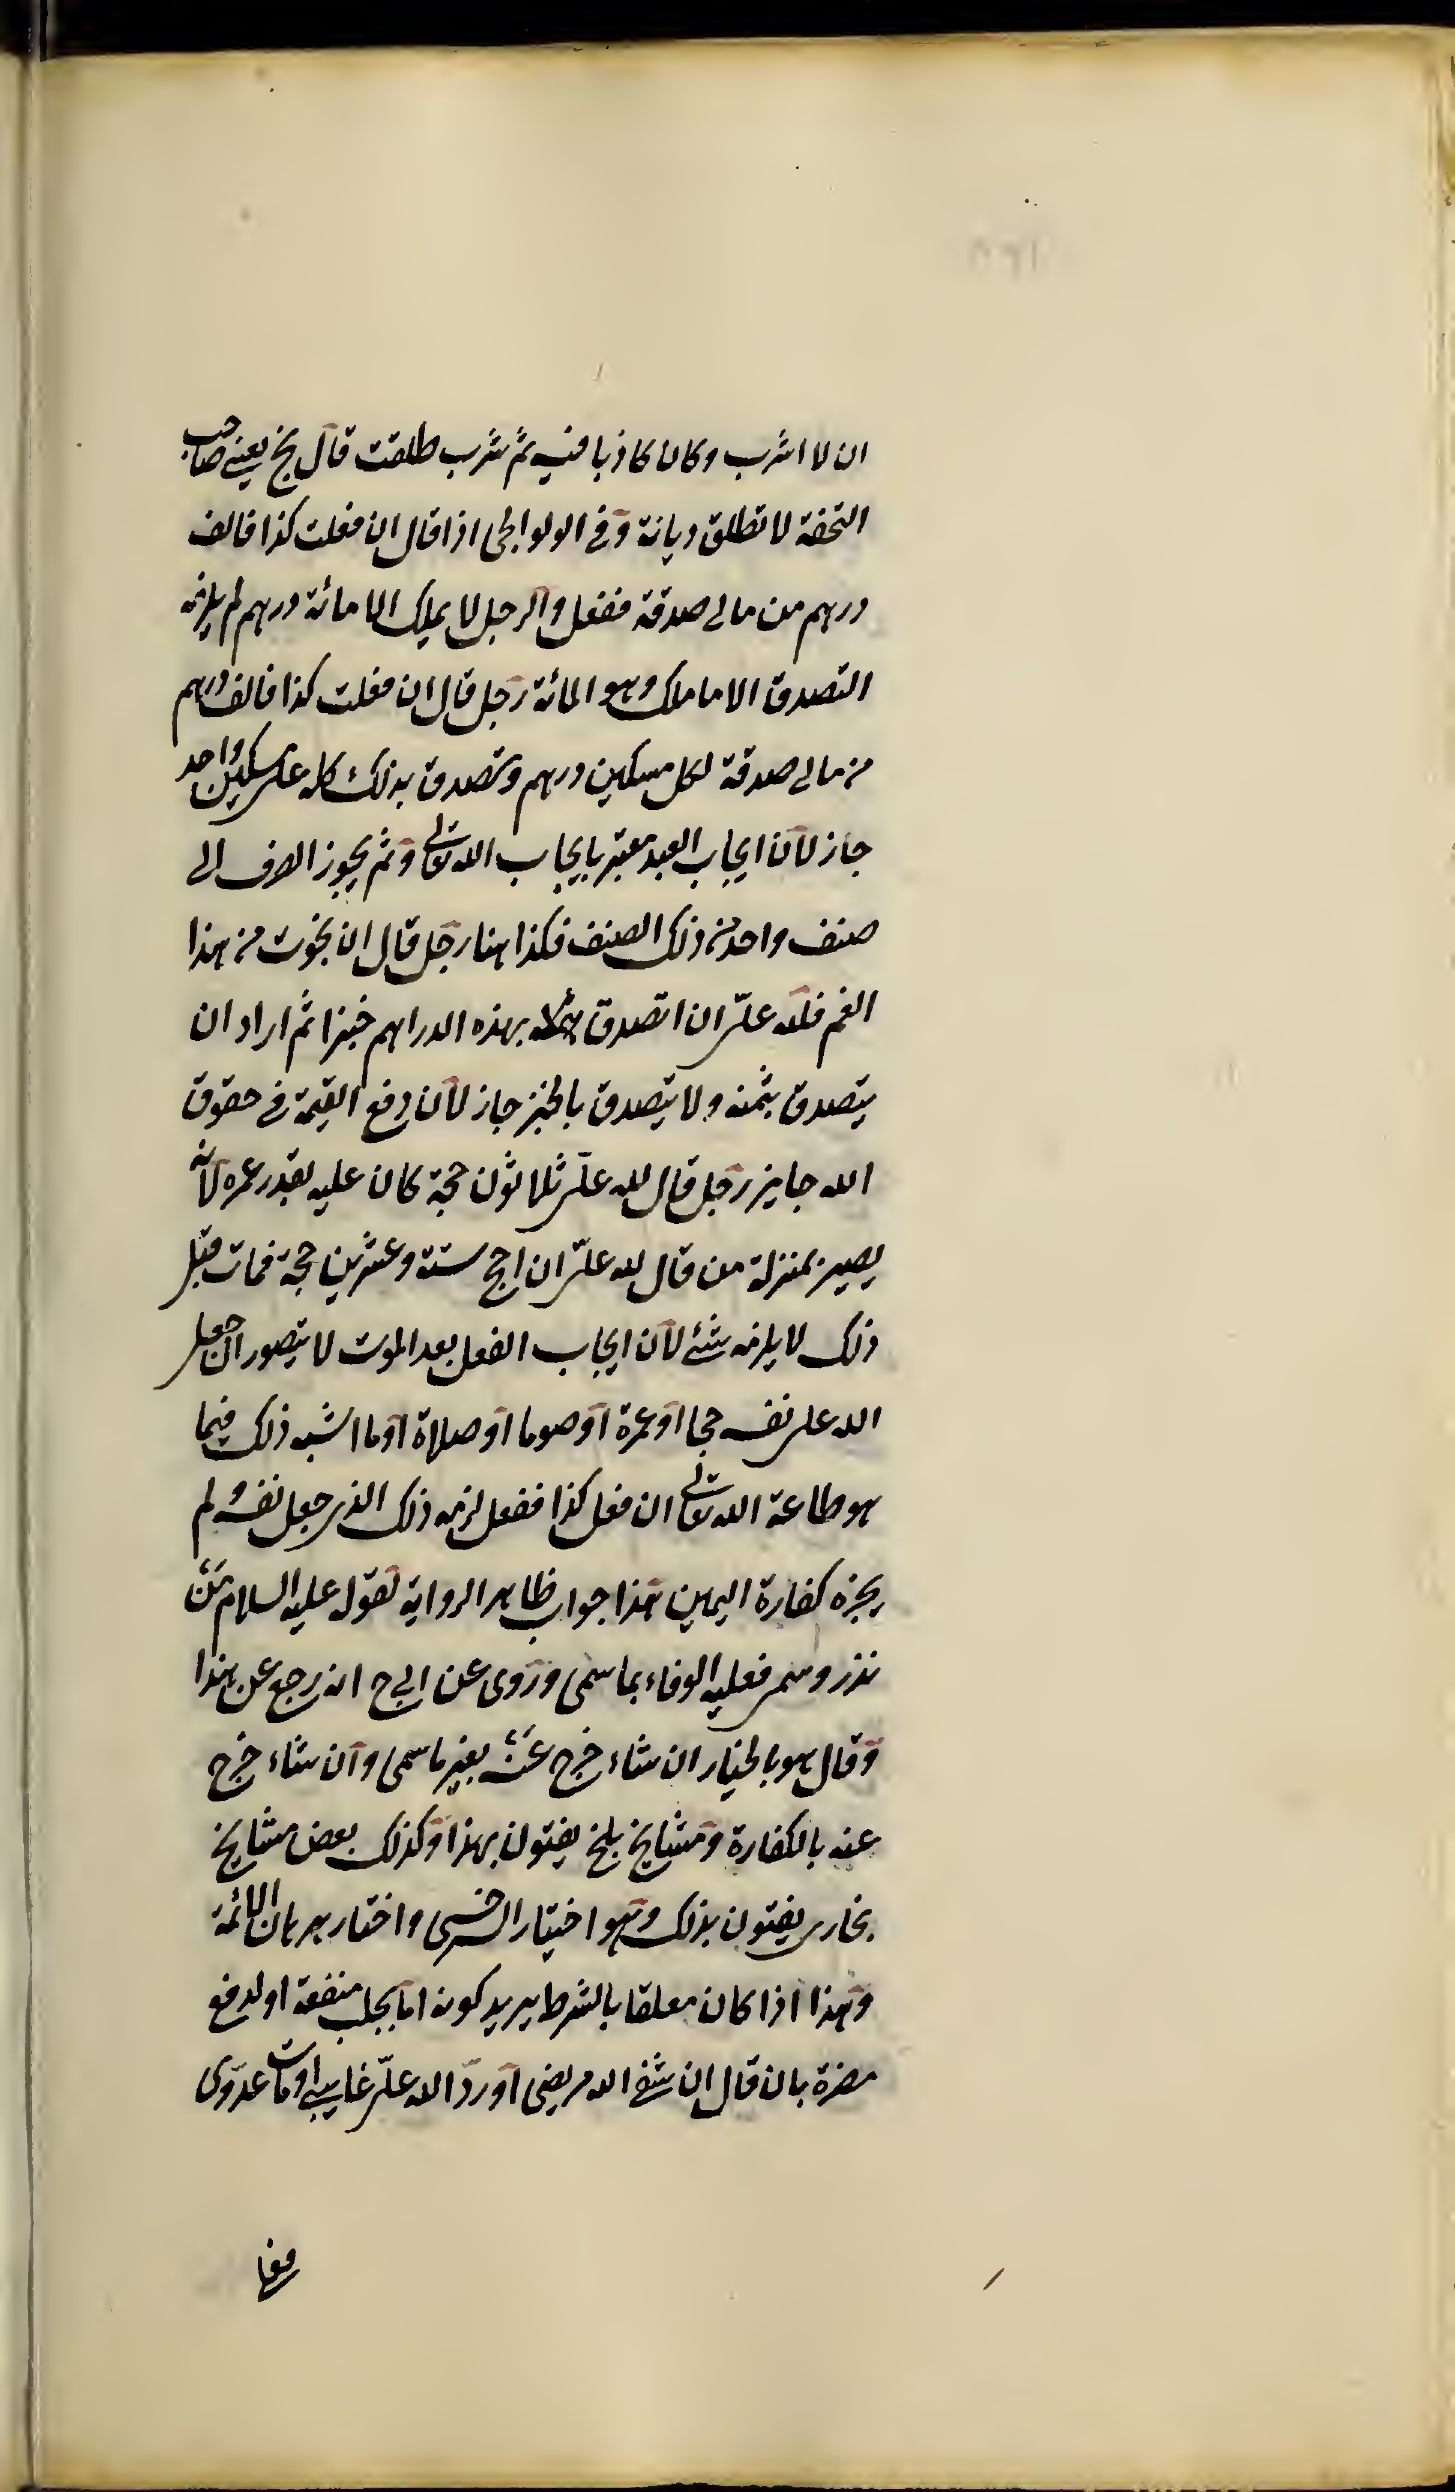 ان لا اشرب وكان كاذبا فيه ثم شرب طلقت قال بخ يعني صاحب
التحفة لا تطلق ديانة وفي الولوالجي اذا قال ان فعلت كذا فالف
درهم من مالي صدقة ففعل والرجل لا يملك الا مائة درهم لم يلزمه
التصدق الا ما ملك وهو المائة رجل قال ان فعلت كذا فالف درهم
من مالي صدقة لكل مسكين درهم وتصدق بذلك كله على مسكين واحد
جاز لان ايجاب العبد معتبر بايجاب الله تعالى وثم يجوز الصرف الى
صنف واحد من ذلك الصنف فكذا هنا رجل قال ان نجوت من هذا
الغم فلله علىّ ان اتصدق بهذه الدراهم خبزا ثم اراد ان
يتصدق بثمنه ولا يتصدق بالخبز جاز لان دفع القيمة في حقوق
الله جايز رجل قال لله علىّ ثلاثون حجة كان عليه بقدر عمره لانه
يصير بمنزلة من قال لله علىّ ان احج ستة وعشرين حجة فمات قبل
ذلك لا يلزمه شئ لان ايجاب الفعل بعد الموت لا يتصور ان جعل
الله على نفسه حجا او عمرة او صوما او صلاة او ما اشبه ذلك فيما
هو طاعة الله تعالى ان فعل كذا ففعل لزمه ذلك الذى جعل نفسه ولم
يجزه كفارة اليمين هذا جواب ظاهر الرواية لقوله عليه السلام من
نذر وسمى فعليه الوفاء بما سمى وروى عن ابي ح انه رجع عن هذا
وقال هو بالخيار ان شاء خرج عنه بغير ما سمى وان شاء خرج
عنه بالكفارة ومشايخ بلخ يفتون بهذا وكذلك بعض مشايخ
بخارى يفتون بذلك وهو اختيار السرخسى واختار برهان الائمة
وهذا اذا كان معلقا بالشرط يريد كونه اما لجلب منفعة او لدفع
مضرة بان قال ان شفى الله مريضى او ردّ الله علىّ غايبي او مات عدوى